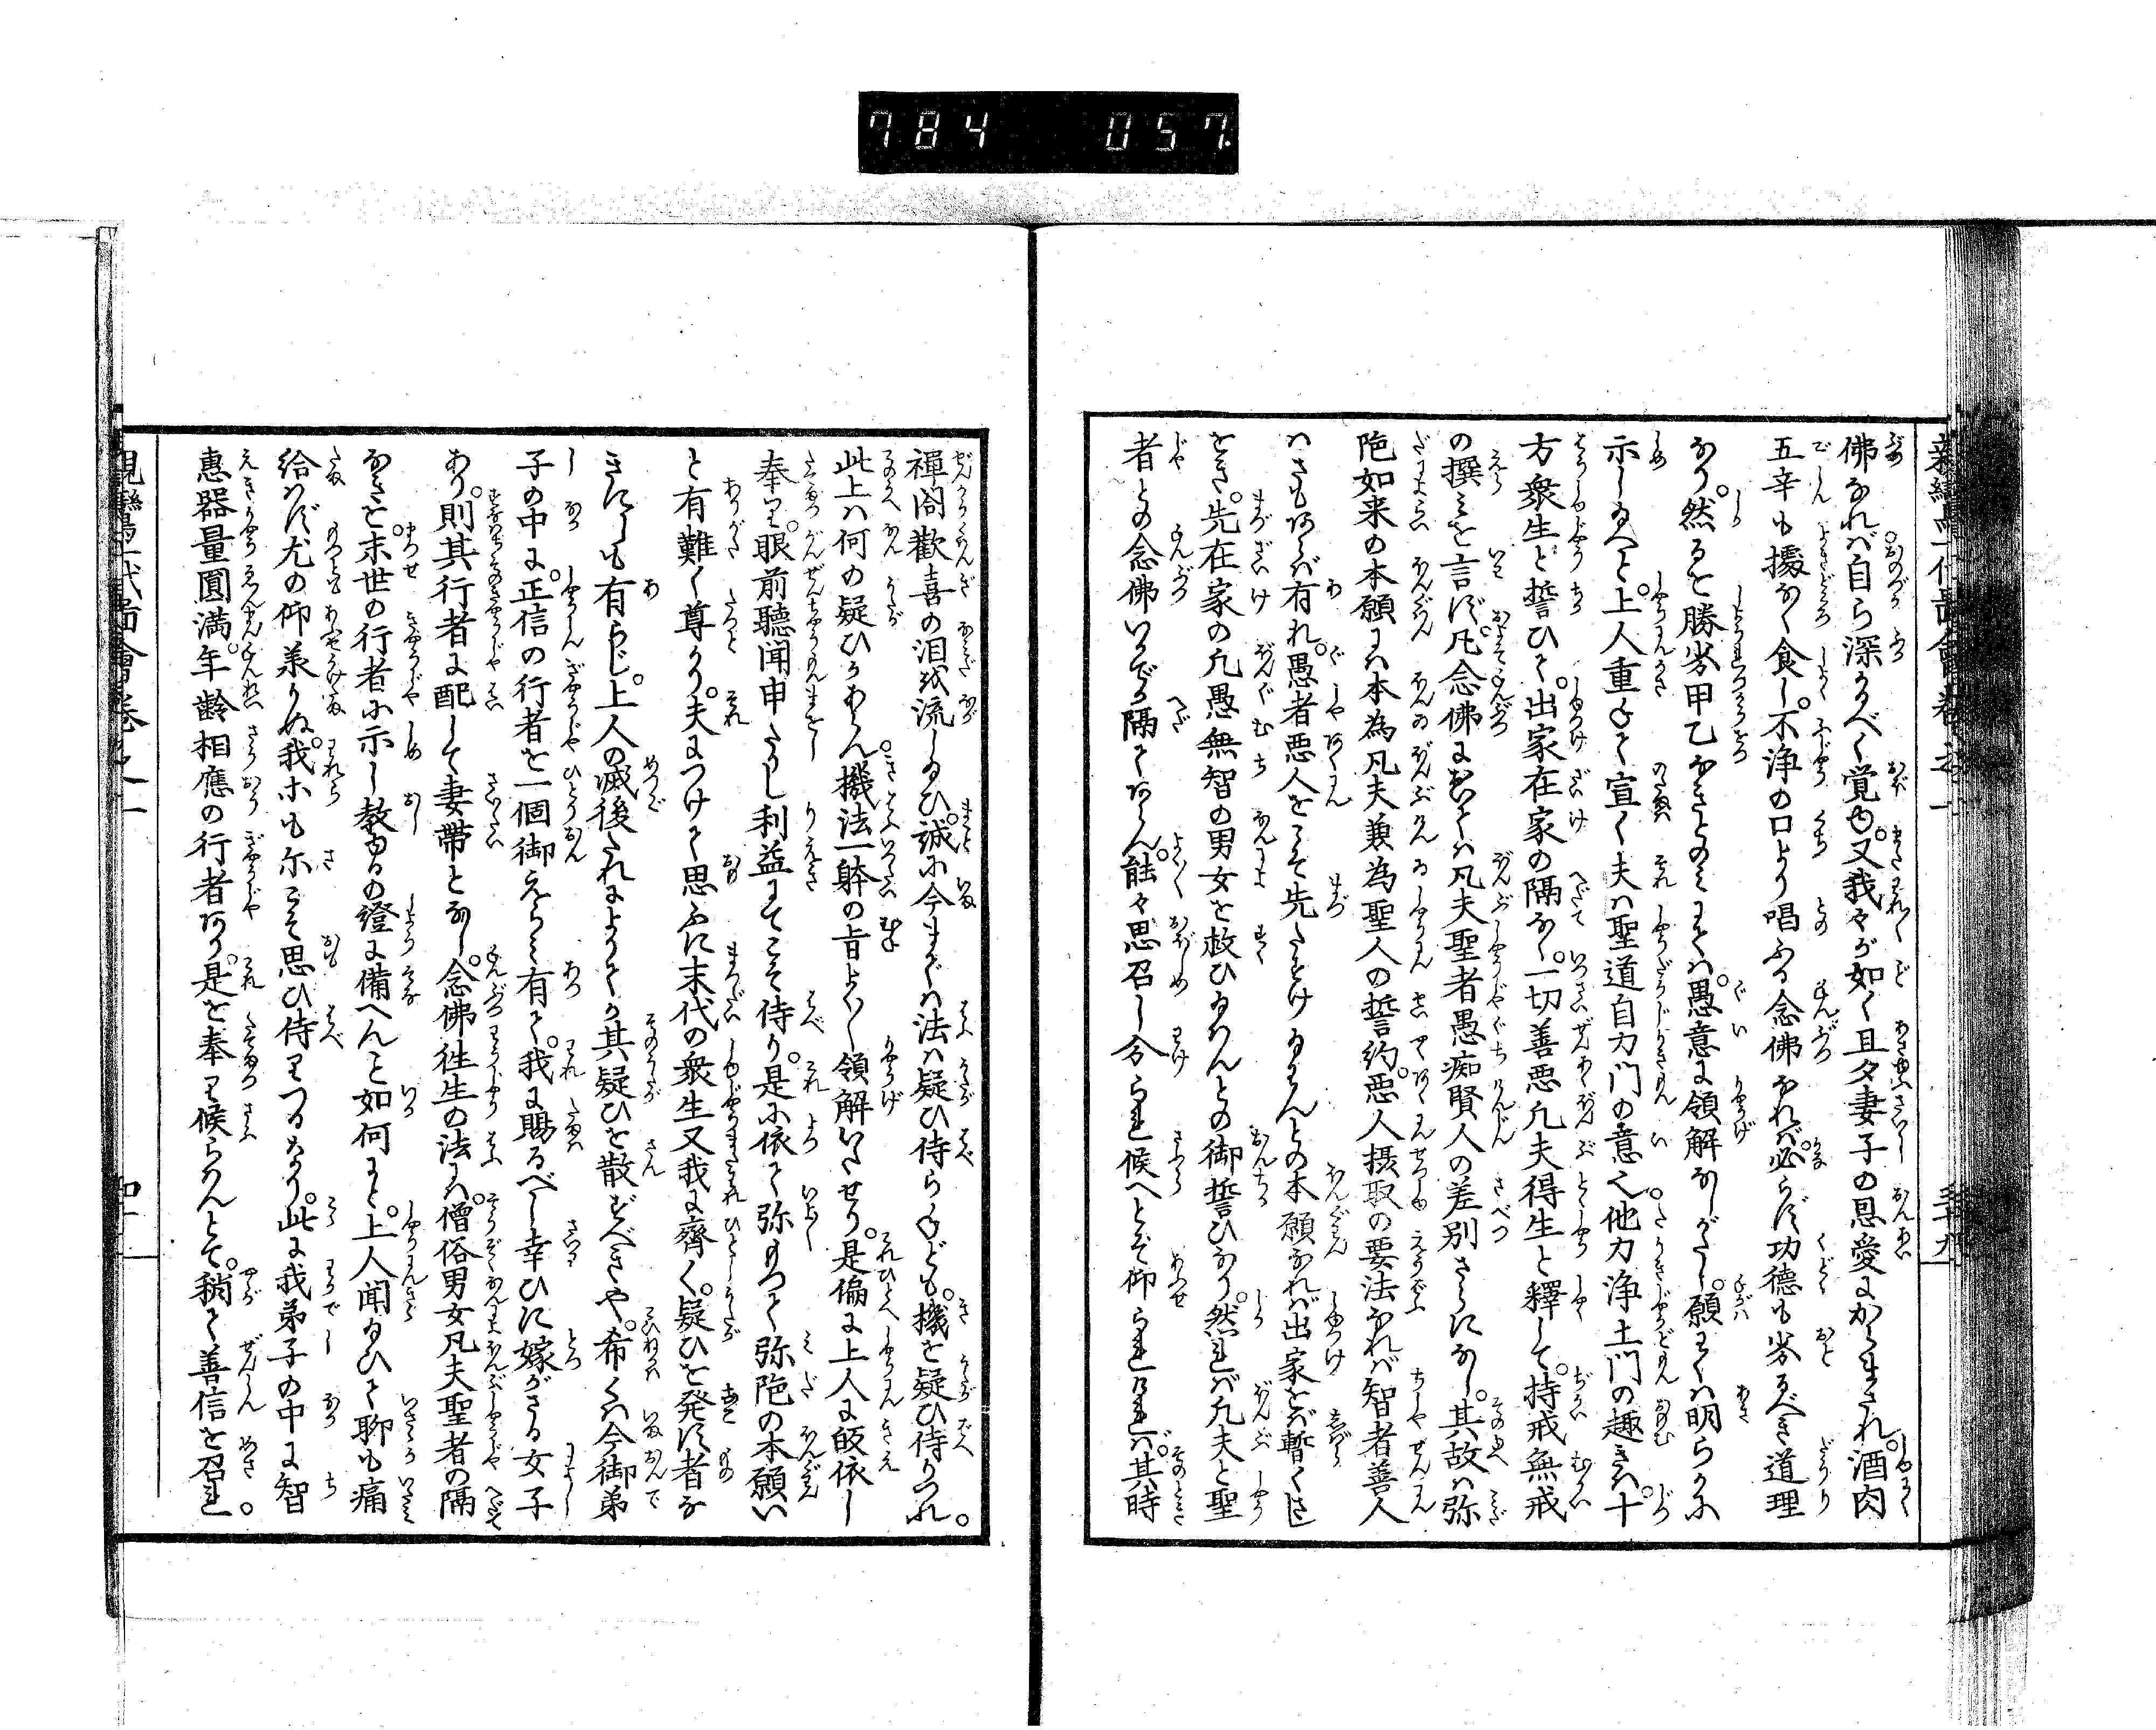 784 057
佛なれバ自ら深かるべく覚ゆ。又我々が如く旦夕妻子の恩愛にからまされ。酒肉
五辛も擾なく食し。不浄の口より唱ふる念佛なれバ。必らず功徳も劣るべき道理
なり。然るを勝劣甲乙なきとのミにてハ。愚意に領解なしがたし。願くハ明らかに
示し給へと。上人重ねて宣く夫ハ聖道自力門の意也。他力浄土門の趣きハ。十
方衆生と誓ひて。出家在家の隔なし。一切善悪凡夫得生と釋して。持戒無戒
の撰ミを言ず。凡念佛におひてハ凡夫聖者愚痴賢人の差別さらになし。其故ハ弥
陀如来の本願にハ本為凡夫兼為聖人の誓約。悪人摂取の要法なれバ智者善人
ハさもあらバ有れ。愚者悪人をこそ先たすけ給はんとの本願なれバ出家をバ暫くさし
をき。先在家の凡愚無智の男女を救ひ給はんとの御誓ひなり。然れバ凡夫と聖
者との念佛いかでか隔てあらん。能々思召し分られ候へとぞ仰られければ。其時
禪閤歡喜の泪を流し給ひ。誠に今までハ法ハ疑ひ侍らねども。機を疑ひ侍りつれ。
此上ハ何の疑ひかあらん。機法一躰の旨よく〳〵領解いたせり。是偏に上人に皈依し
奉り。眼前聽聞申たりし利益にてこそ侍り。是に依て弥以て弥陀の本願い
と有難く尊かり。夫につけて思ふに末代の衆生又我に齊く。疑ひを発す者な
きにしも有らじ。上人の滅後たれによりてか其疑ひを散ずべきや。希くハ今御弟
子の中に。正信の行者を一個御えらミ有て。我に賜るべし幸ひに嫁がざる女子
あり。則其行者に配して妻帯となし。念佛徃生の法にハ。僧俗男女凡夫聖者の隔
なきを。末世の行者に示し教ゆるの證に備へんと如何にと。上人聞給ひて聊も痛
給はず尤の仰承りぬ。我ホも尓こそ思ひ侍りつるなり。此に我弟子の中に智
惠器量圓満。年齢相應の行者あり。是を奉り候らはんとて。稍て善信を召れ。